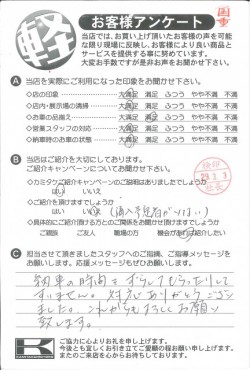 軽
お客様アンケート
当店では、お買い上げ頂いたお客様の声を可能
な限り現場に反映し、お客様により良い商品と
サービスを提供する事に努めています。
大変お手数ですが是非お声をお聞かせ下さい。
A 当店を実際にご利用になった印象をお聞かせ下さい。
◇店の印象 大満足 満足 ふつう やや不満 不満
◇店内・展示場の清掃 大満足 満足 ふつう やや不満 不満
◇お車の品揃え 大満足 満足 ふつう やや不満 不満
◇営業スタッフの対応 大満足 満足 ふつう やや不満 不満
◇納車時のお車の状態 大満足 満足 ふつう やや不満 不満
B 当店はご紹介を大切にしております。
ご紹介キャンペーンについてお聞かせ下さい。
◇カミタケご紹介キャンペーンのご説明はありましたでしょうか
はい いいえ
◇ご紹介を頂けますでしょうか
はい いいえ
◇具体的にご紹介頂ける方とのご関係をお聞かせ頂けますでしょうか
ご親族 ご友人 職場の方 機会があればご紹介したい
C 担当させて頂きましたスタッフへのご指摘、ご指導を
お願いします。応援メッセージもぜひお聞かせ下さい。
納車の時間をずらしてもらったりして
すいません。対応ありがとうござい
ました。これからもよろしくお願い
致します。
K
ご協力に心よりお礼を申し上げます。
今後とも宜しくお引き立てご愛顧の程お願い申し上げます。
またのご来店を心からお待ちしております。